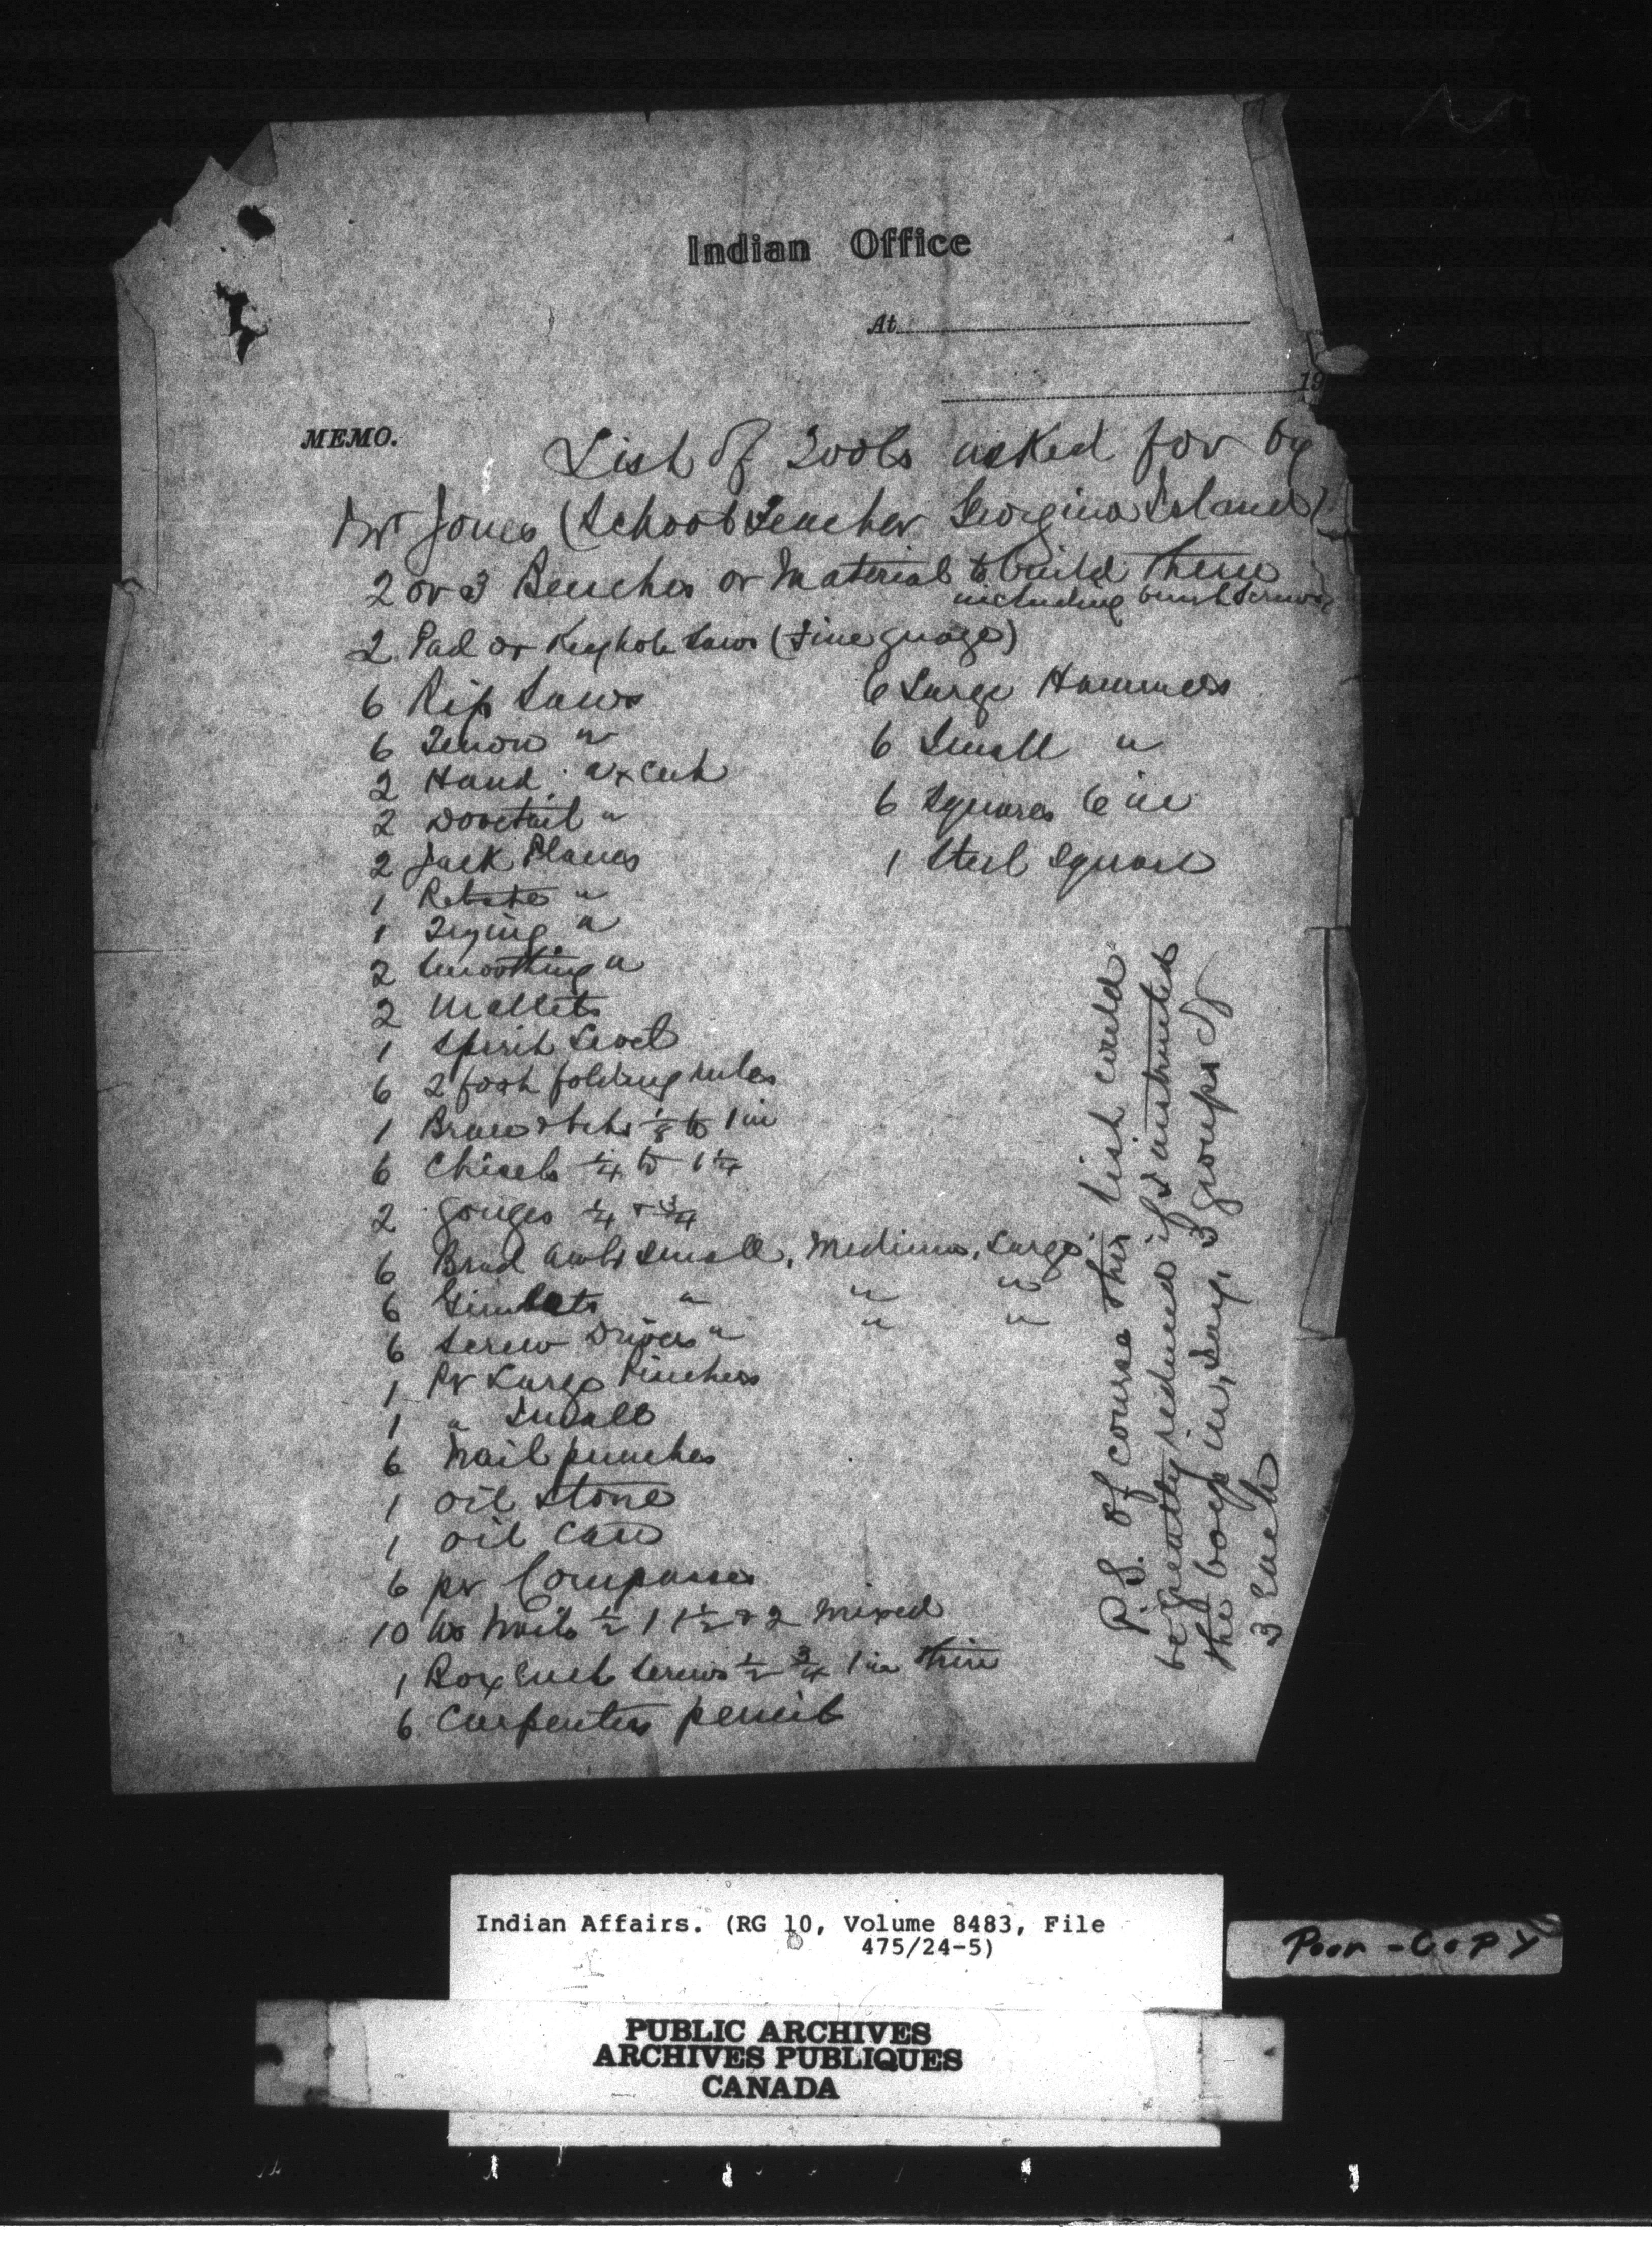 Indian Office
At
19
MEMO.
List of Tools asked for by
Mr Jones (School Teacher Georgina Island)
2 or 3 Benches or Material to build them
including bench screws
2 Pad or Keyhole Saws (Fine guage)
6 Rip Saws
6 Tenon "
2 Hand " x cut
2 Dovetail "
2 Jack Planes
1 Rebate "
1 Trying "
2 Smoothing "
2 Mallets
1 Spirit Level
6 2 foot folding rules
1 Brace & bits 1/8 to 1 in
6 Chisels 1/4 to 1 1/4
2 Gouges 1/4 & 3/4
6 Brad awls small, Medium, Large
6 Gimlets " " "
6 Screw Drivers " " "
1 Pr Large Pinchers
1 " Small
6 Nail punches
1 oil stone
1 oil can
6 pr Compasses
10 lbs Nails 1/2 1 1 1/2 & 2 mixed
1 Box each screws 1/2 3/4 1 in thin
6 Carpenters pencils
6 Large Hammers
6 Small "
6 Squares 6 in
1 Steel square
P.S. Of course this list could
be greatly reduced if I instructed
the boys in, say, 3 groups of
3 each
Indian Affairs. (RG 10, Volume 8483, File
475/24-5)
Poor - Copy
PUBLIC ARCHIVES
ARCHIVES PUBLIQUES
CANADA